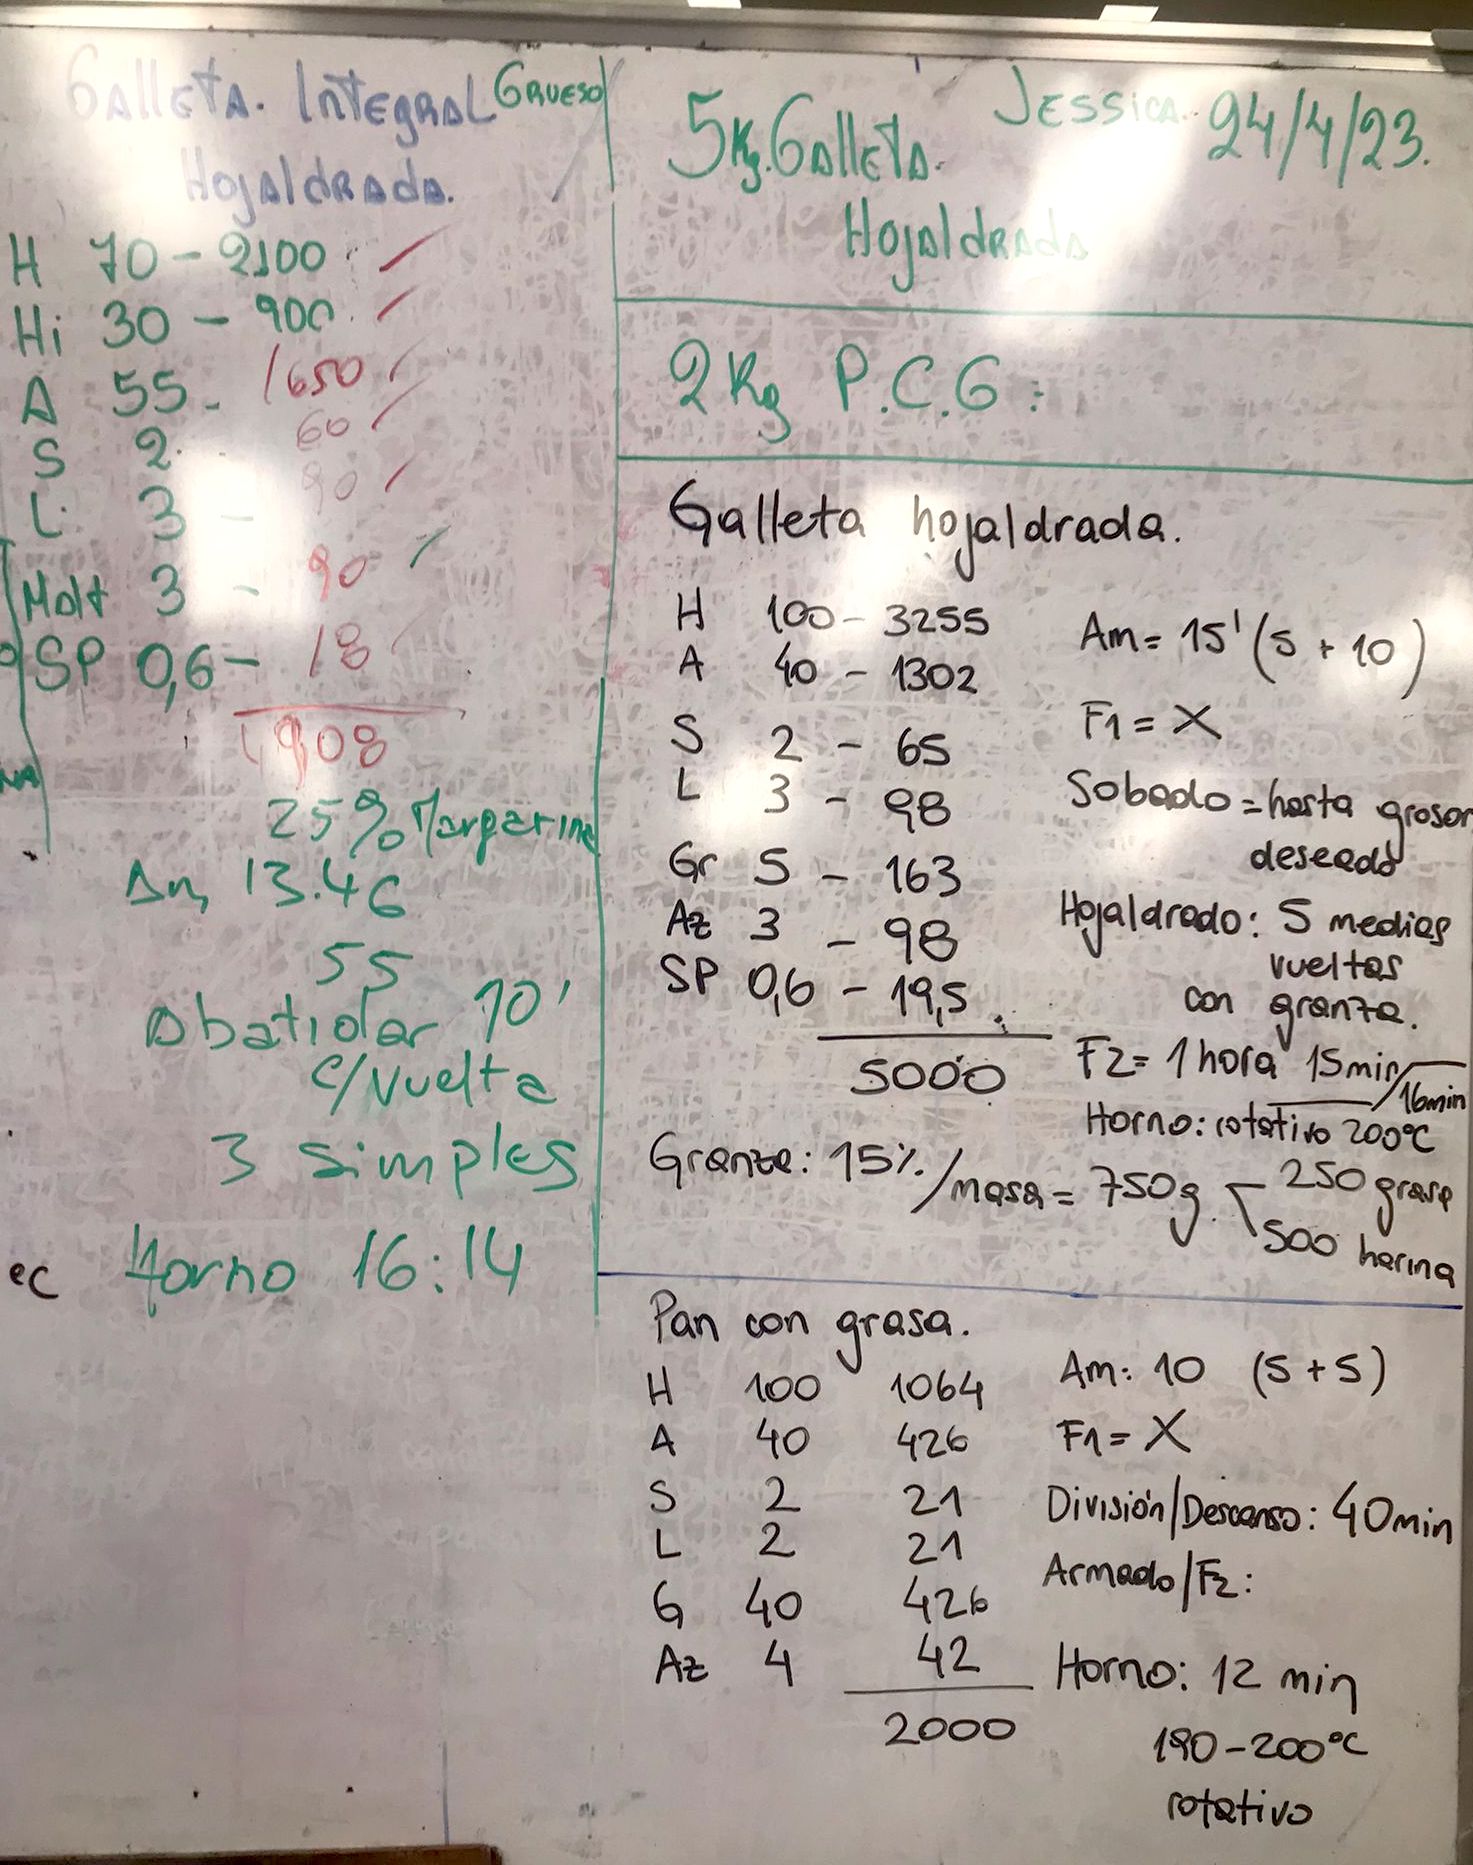 GALLETA. INTEGRAL GRUESO
HOJALDRADA.
H 70 - 2100
Hi 30 - 900
A 55 - 1650
S 2 60
L 3 - 90
Malt 3 - 90
SP 0,6 - 18
4908
25% Margarina
Am 13.46
55
Abatidor 10'
c/vuelta
3 simples
ec Horno 16:14
5Kg. GALLETA. JESSICA 24/4/23.
HOJALDRADA
2Kg P.C.G:
Galleta hojaldrada.
H 100 - 3255
A 40 - 1302
S 2 - 65
L 3 - 98
Gr 5 - 163
Az 3 - 98
SP 0,6 - 19,5
5000
Am = 15' (5 + 10)
F1 = X
Sobado = hasta grosor
deseado
Hojaldrado: 5 medias
vueltas
con granza.
F2 = 1 hora 15min/16min
Horno: rotativo 200°C
Granza: 15%/masa = 750g. 250 grasa
500 harina
Pan con grasa.
H 100 1064
A 40 426
S 2 21
L 2 21
G 40 426
Az 4 42
2000
Am: 10 (5 + 5)
F1 = X
División/Descanso: 40min
Armado/F2:
Horno: 12 min
190-200°C
rotativo